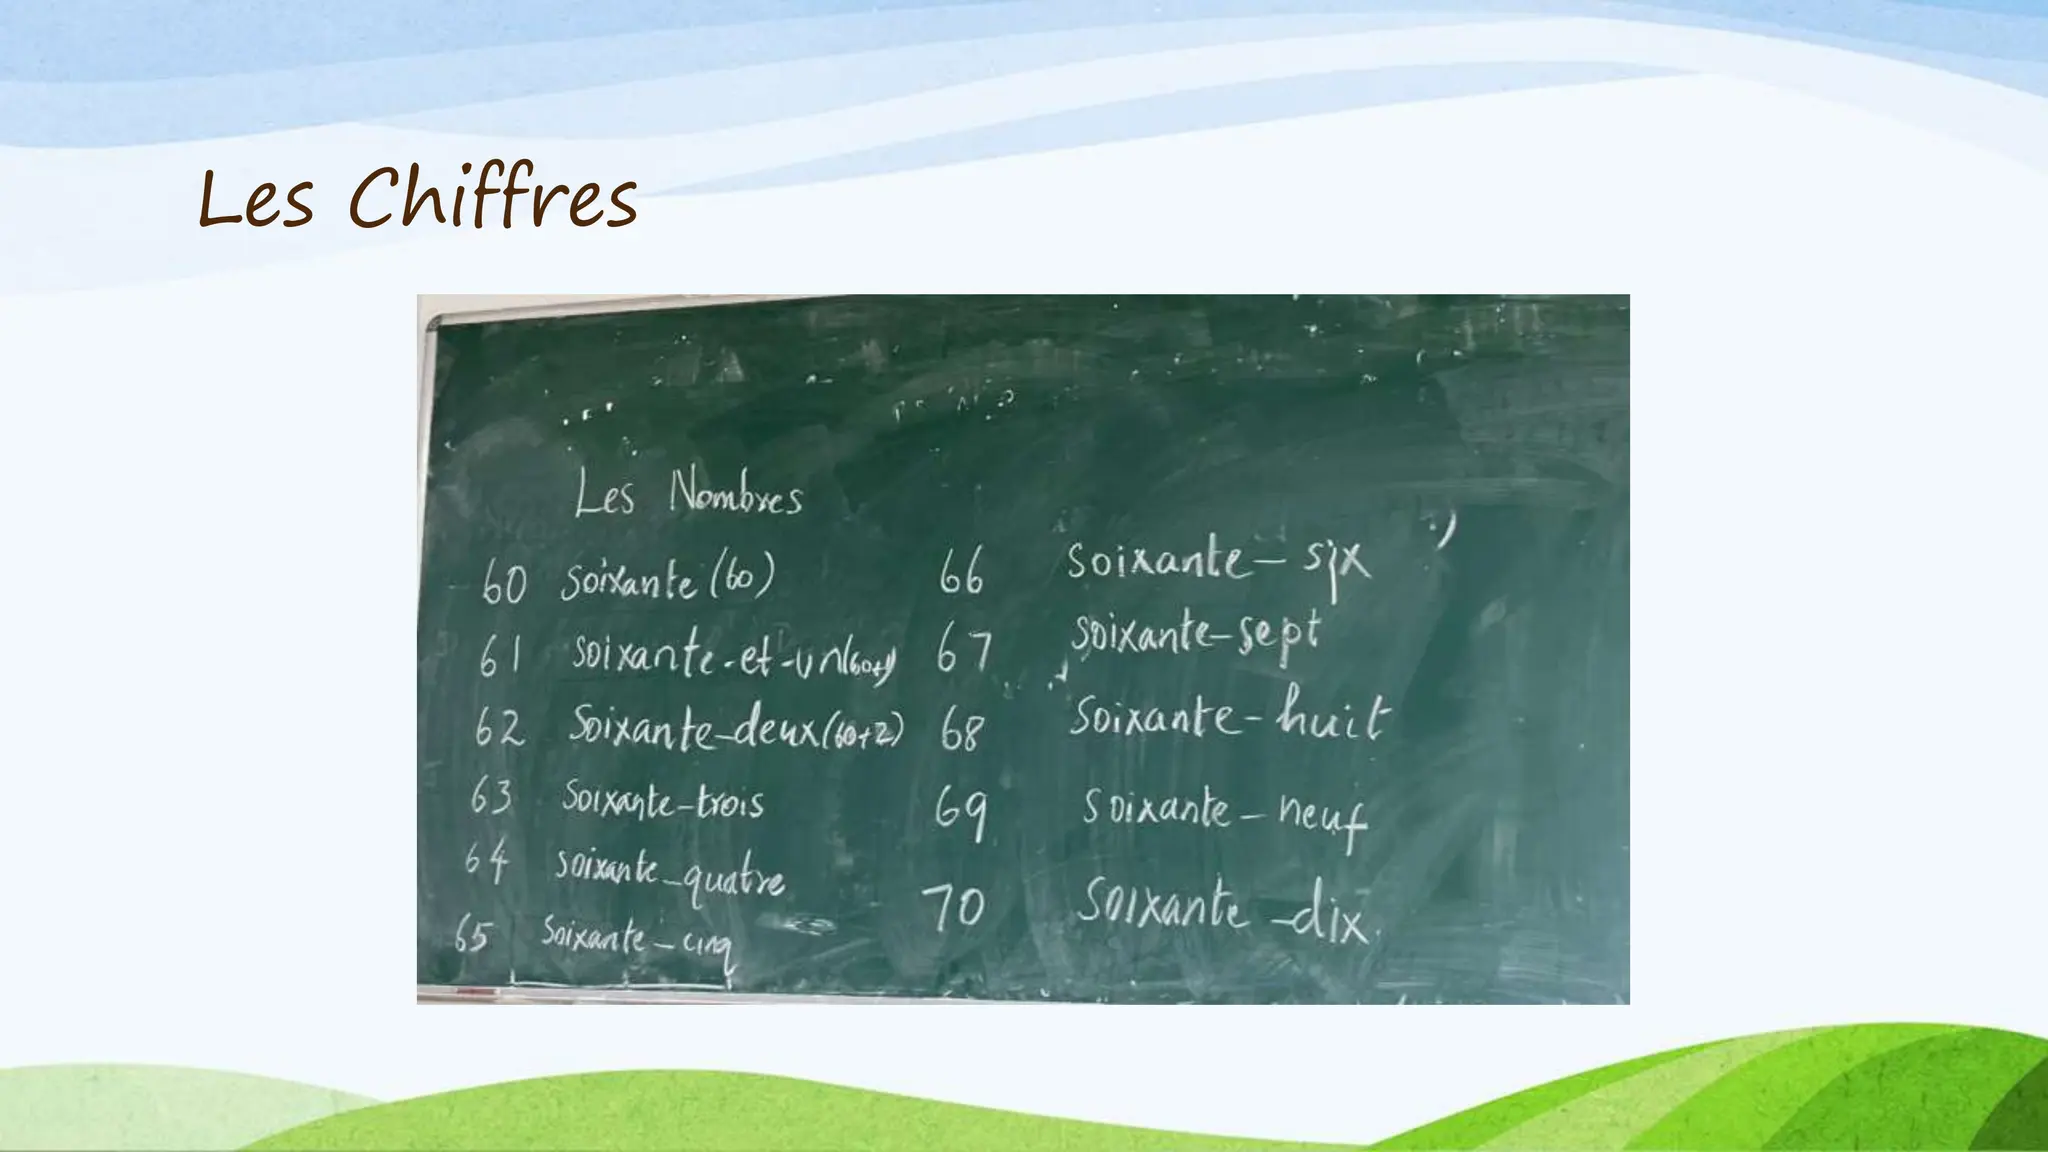 Les Chiffres
Les Nombres
60 soixante (60)
61 soixante-et-un (60+1)
62 soixante-deux (60+2)
63 soixante-trois
64 soixante-quatre
65 soixante-cinq
66 soixante-six
67 soixante-sept
68 soixante-huit
69 soixante-neuf
70 soixante-dix.